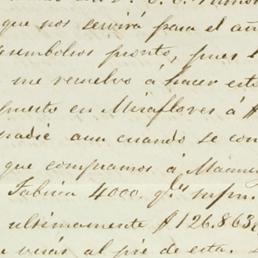 que nos servirá para el añ
sembolsos pronto, pues l
me resuelvo a hacer este
puesto en Miraflores á $
nadie aun cuando se con
que compramos á Manue
Fabrica 4000 qqs m/m.
ultimamente $126.863
verás al pié de esta.